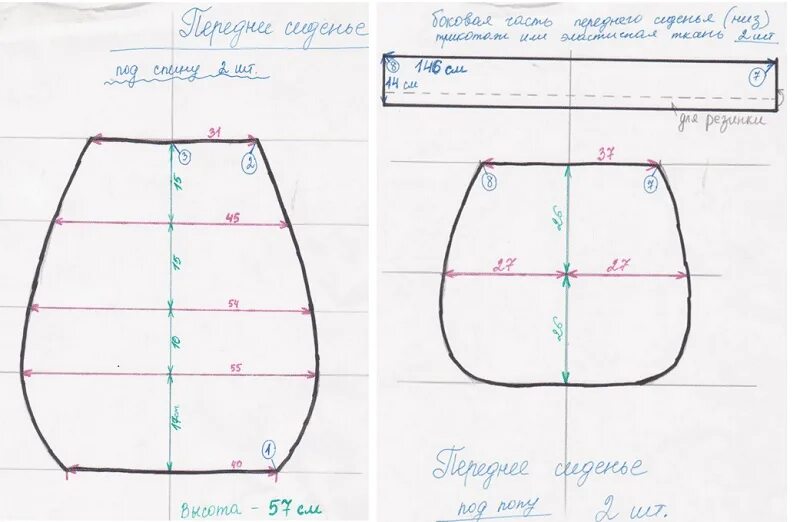 Переднее сиденье
под спину 2 шт.
31
3
2
15
45
15
54
10
55
17см
1
40
Высота - 57 см
боковая часть переднего сиденья (низ)
трикотаж или эластисная ткань 2 шт
8
146 см
7
14 см
для резинки
37
8
7
26
27
27
26
Переднее сиденье
под попу 2 шт.